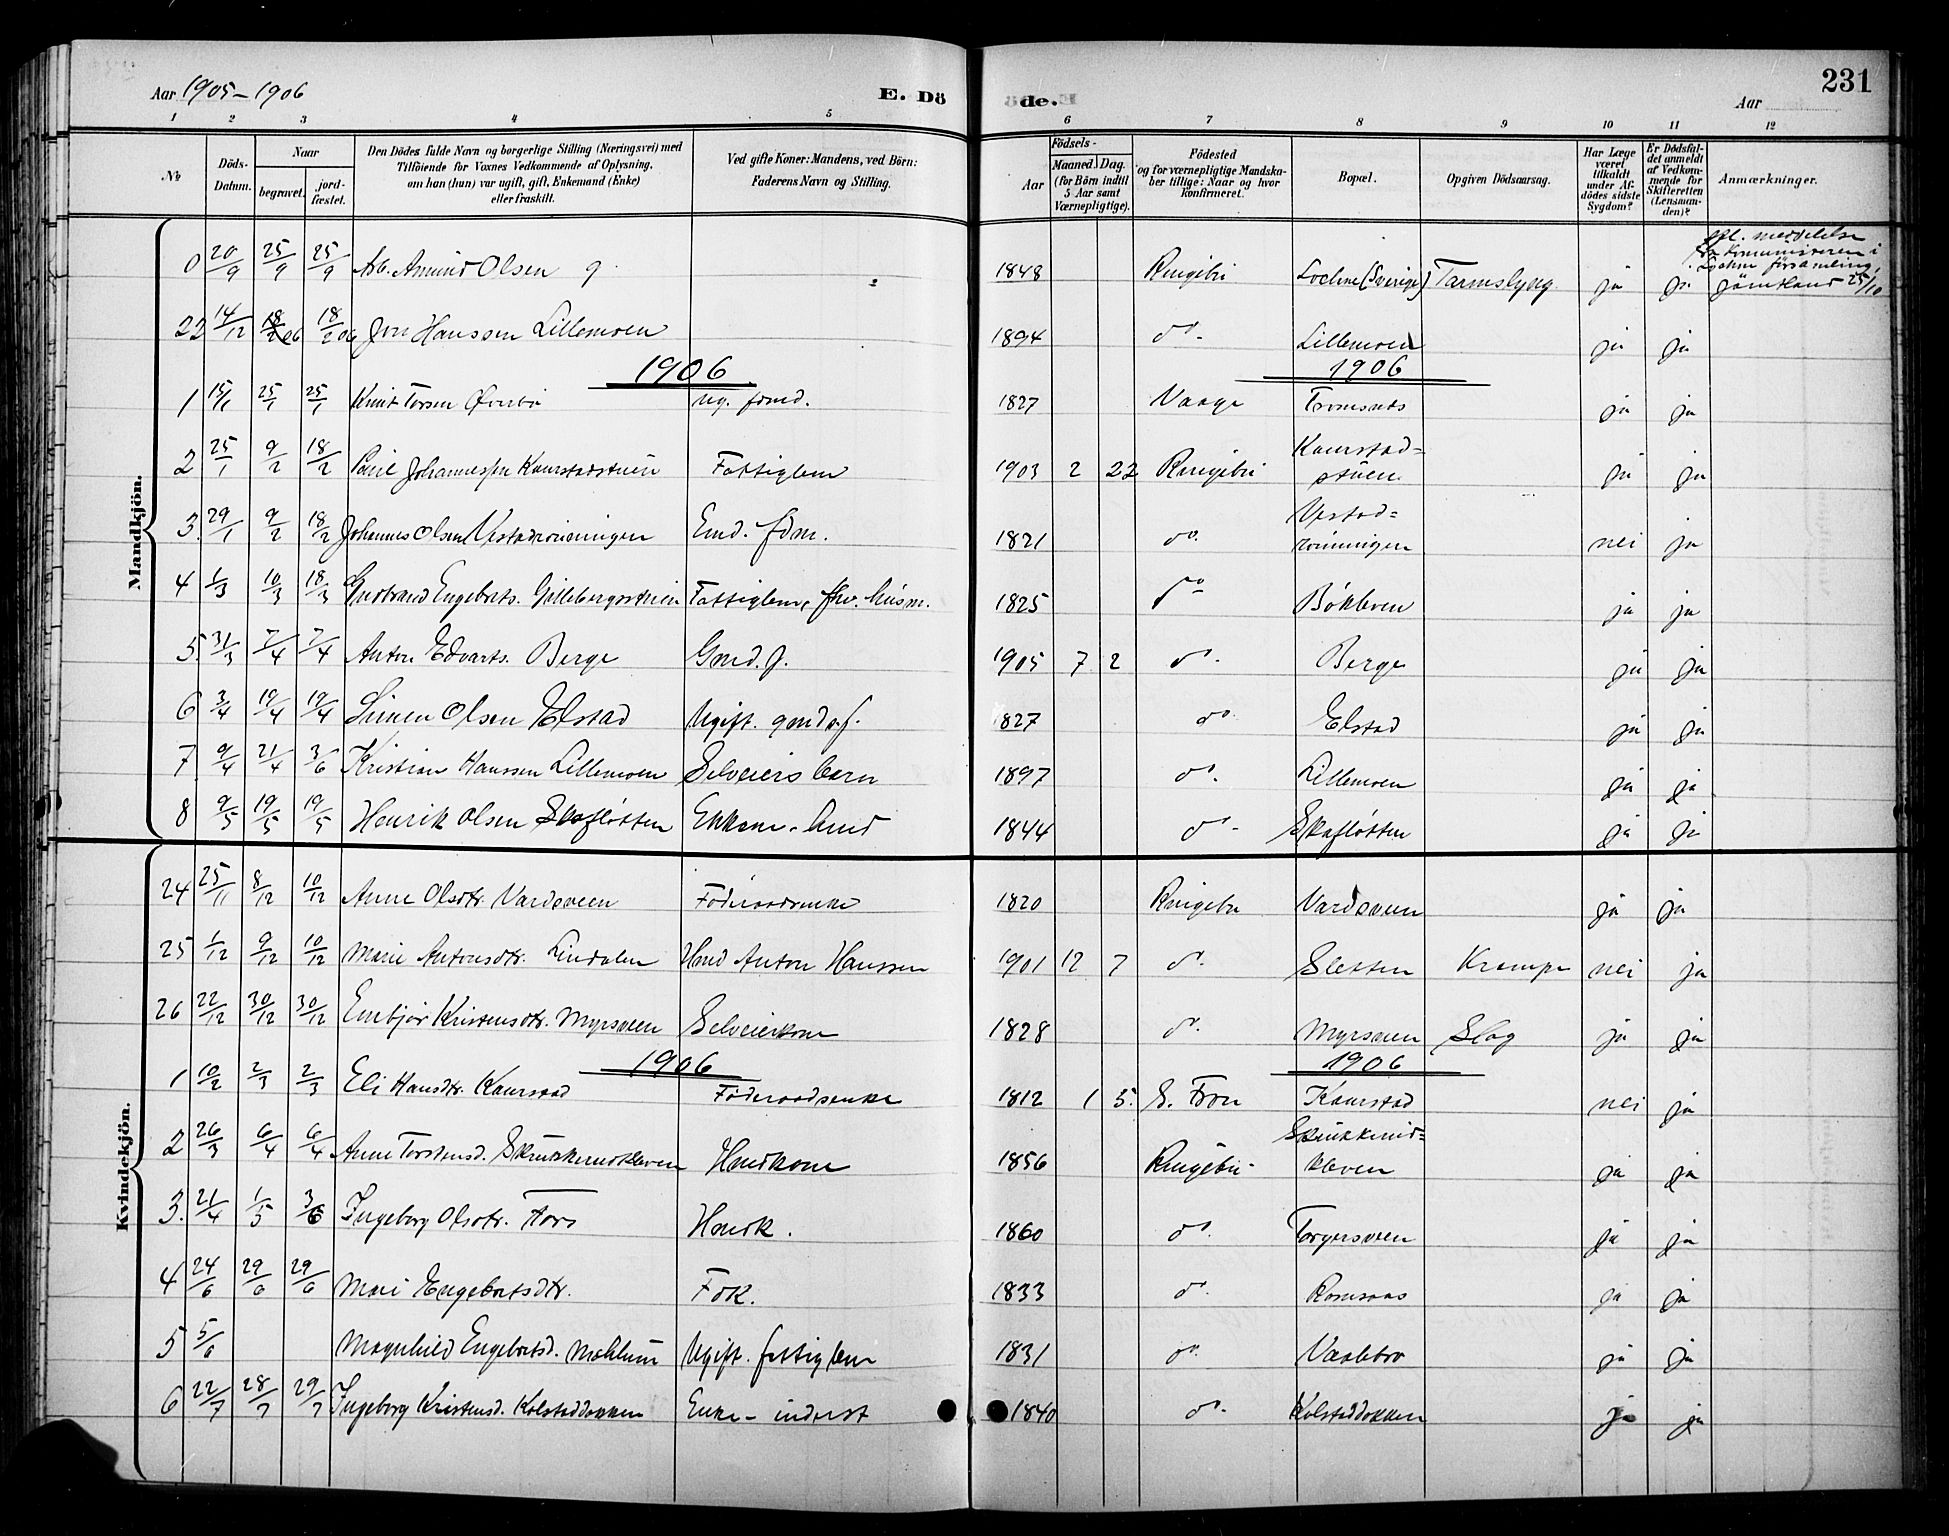 Aar 1905-1906
E. Dö
de.
Aar
231
1 2 3 4 5 6 7 8 9 10 11 12
No
Döds-Datum.
Naar
begravet.
jord-fæstet.
Den Dödes fulde Navn og borgerlige Stilling (Næringsvei) med
Tilföiende for Voxnes Vedkommende af Oplysning,
om han (hun) var ugift, gift, Enkemand (Enke)
eller fraskilt.
Ved gifte Koner: Mandens, ved Börn:
Faderens Navn og Stilling.
Födsels-
Aar
Maaned. Dag.
(for Börn indtil
5 Aar samt
Værnepligtige).
Födested
og for værnepligtige Mandska-
ber tillige: Naar og hvor
konfirmeret.
Bopæl.
Opgiven Dödsaarsag.
Har Læge
været
tilkaldt
under Af-
dödes sidste
Sygdom?
Er Dödsfal-
det anmeldt
af Vedkom-
mende for
Skifteretten
(Lensman-
den)?
Anmærkninger.
Mandkjön.
0 20/9 25/9 25/9 Arb. Amund Olsen g. 1848 Ringebu Lochne (Sverige) Tarmsbyng. ja ja
meddelelse
Kommunisteren i
Lochne församling,
Jämtland 25/10
22 14/12 18/2 06 18/2 06 Jon Hanssen Lillemoen 1894 do. Lillemoen ja ja
1906 1906
1 15/1 25/1 25/1 Knut Torsen Øverbø Ug. fdmd. 1827 Vaage Tromsnes ja ja
2 25/1 9/2 18/2 Paul Johannessen Kaurstadstuen Fattiglem 1903 2 22 Ringebu Kaurstad=
stuen. ja ja
3. 29/1 9/2 18/2 Johannes Olsen Vestadrønningen Emd. fdm. 1821 do. Vestad=
rønningen nei ja
4 1/3 10/3 18/3 Gudbrand Engebrets. Gillebergsstuen Fattiglem, fhv. husm. 1825 do Bøkleven ja ja
5. 31/3 7/4 7/4 Anton Edvarts. Berge Gmd. f. 1905 7 2 do. Berge ja ja
6 3/4 19/4 19/4 Simen Olsen Elstad Ugift. gmds.f. 1827 do. Elstad ja ja
7 9/4 21/4 3/6 Kristian Hanssen Lillemoen Selveiers barn 1897 do. Lillemoen ja ja
8 9/5 19/5 19/5 Henrik Olsen Skafløtten Enkem. hmd 1844 do. Skafløtten ja ja
Kvindekjön.
24 25/11 8/12 10/12 Anne Olsdtr. Vardsveen Føderaadsenke 1820 Ringebu Vardsveen ja ja
25 1/12 9/12 10/12 Marie Antonsdtr. Lindalen Hmd Anton Hanssen 1901 12 7 do. Sletten Krampe nei ja
26 22/12 30/12 30/12 Embjør Kristensdtr. Myrsveen Selveierkone 1828 do. Myrsveen Slag ja ja
1906 1906
1 10/2 2/3 2/3 Eli Hansdtr. Kaurstad Føderaadsenke 1812 1 5. S. Fron Kaurstad nei ja
2 26/3 6/4 6/4 Anne Torstensd. Skrukkerudkleven Hmdkone 1856 Ringebu Skrukkerud=
kleven ja ja
3. 21/4 1/5 3/6 Ingeborg Olsdtr. Fors Hmdk. 1860 do. Torgersveen ja ja
4 24/6 29/6 29/6 Mari Engebretsdtr. Fdk. 1833 do. Romsaas ja ja
5 5/6 Magnhild Engebretsd. Mæhlum Ugift. fattiglem 1831 do. Vaalebro ja ja
6 22/7 28/7 29/7 Ingeborg Kristensd. Kolstaddokken Enke - inderst 1840 do. Kolstaddokken ja ja